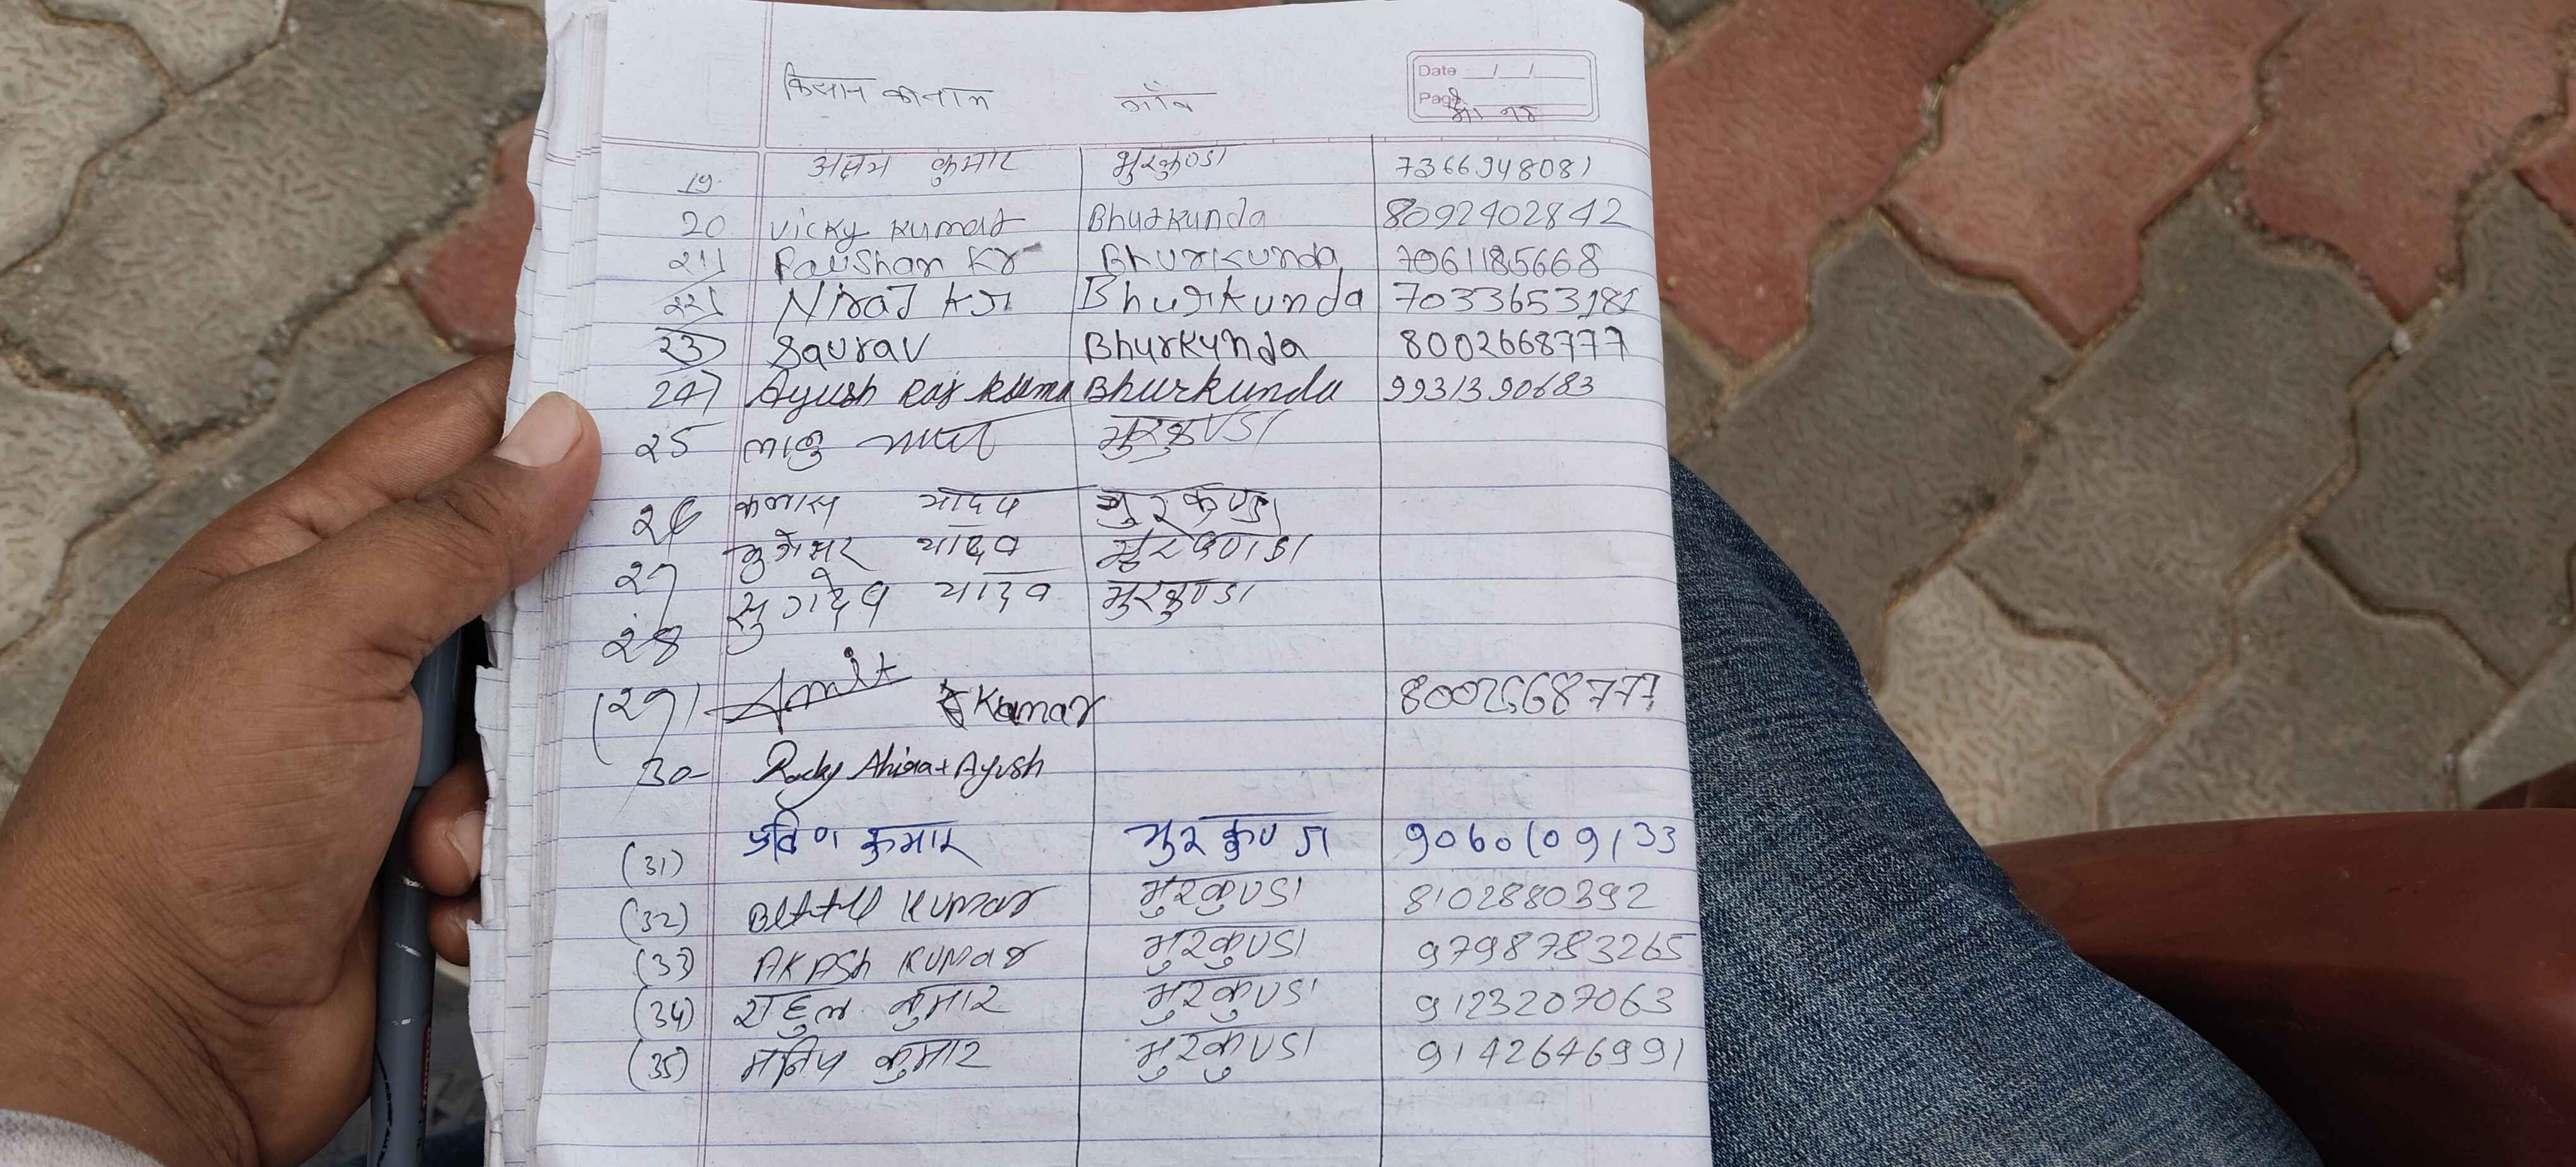 किसान का नाम गाँव Date / /
Page मो नं
19 अक्षय कुमार भुरकुण्डा 7366948081
20 Vicky Kumar Bhurkunda 8092402842
21) Raushan Kr Bhurkunda 7061185668
22) Niraj Kr Bhurkunda 7033653181
23) Saurav Bhurkunda 8002668777
24) Ayush Raj Kuma Bhurkunda 9931390683
25 लालु भुरकुण्डा
26 कलास यादव भुरकुण्डा
27 यादव भुरकुण्डा
28 सुगदेव यादव भुरकुण्डा
(29) Amit Kumar 8002668777
30- Rocky Ahira+Ayush
(31) प्रविण कुमार भुरकुण्डा 9060109133
(32) Kumar भुरकुण्डा 8102880392
(33) AKASh KUMAR भुरकुण्डा 9798783265
(34) राहुल कुमार भुरकुण्डा 9123207063
(35) मनिष कुमार भुरकुण्डा 9142646991